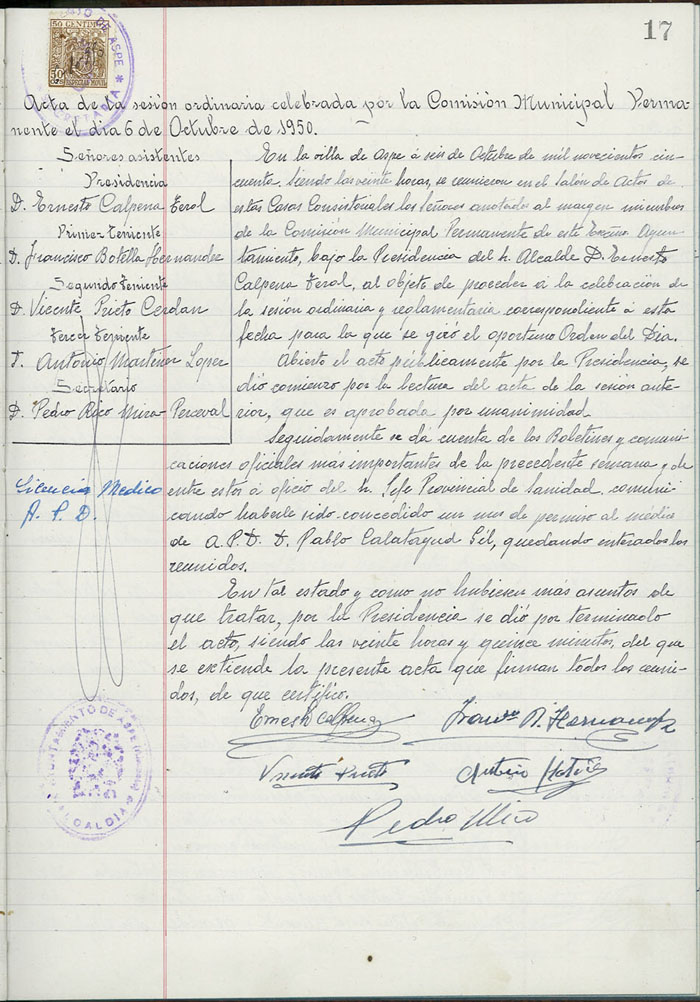 17
50 CENTIMOS
Acta de la sesión ordinaria celebrada por la Comisión Municipal Perma
nente el dia 6 de Octubre de 1950.
Señores asistentes
Presidencia
D. Ernesto Calpena Ferol
Primer Teniente
D. Francisco Botella Hernandez
Segundo Teniente
D. Vicente Prieto Cerdan
Tercer Teniente
D. Antonio Martinez Lopez
Secretario
D. Pedro Rico Mira-Perceval
Licencia Medico
A. P. D.
En la villa de Aspe á seis de Octubre de mil novecientos cin
cuenta. Siendo las veinte horas, se reunieron en el Salón de Actos de
estas Casas Consistoriales los señores anotados al margen miembros
de la Comisión Municipal Permanente de este Excmo. Ayun
tamiento, bajo la Presidencia del Sr. Alcalde D. Ernesto
Calpena Ferol, al objeto de proceder á la celebración de
la sesión ordinaria y reglamentaria correspondiente á esta
fecha para la que se giró el oportuno Orden del Dia.
Abierto el acto públicamente por la Presidencia, se
dió comienzo por la lectura del acta de la sesión ante-
rior, que es aprobada por unanimidad
Seguidamente se dá cuenta de los Boletines y comuni
caciones oficiales más importantes de la precedente semana y de
entre estos á oficio del Sr. Jefe Provincial de Sanidad comuni
cando haberle sido concedido un mes de permiso al médico
de A.P.D. D. Pablo Calatayud Gil, quedando enterados los
reunidos.
En tal estado y como no hubiesen más asuntos de
que tratar, por la Presidencia se dió por terminado
el acto, siendo las veinte horas y quince minutos, del que
se extiende la presente acta que firman todos los reuni-
dos, de que certifico.
Ernesto Calpena
Franco B. Hernandez
Vicente Prieto
Antonio Martinez
Pedro Rico
AYUNTAMIENTO DE ASPE
ALCALDIA